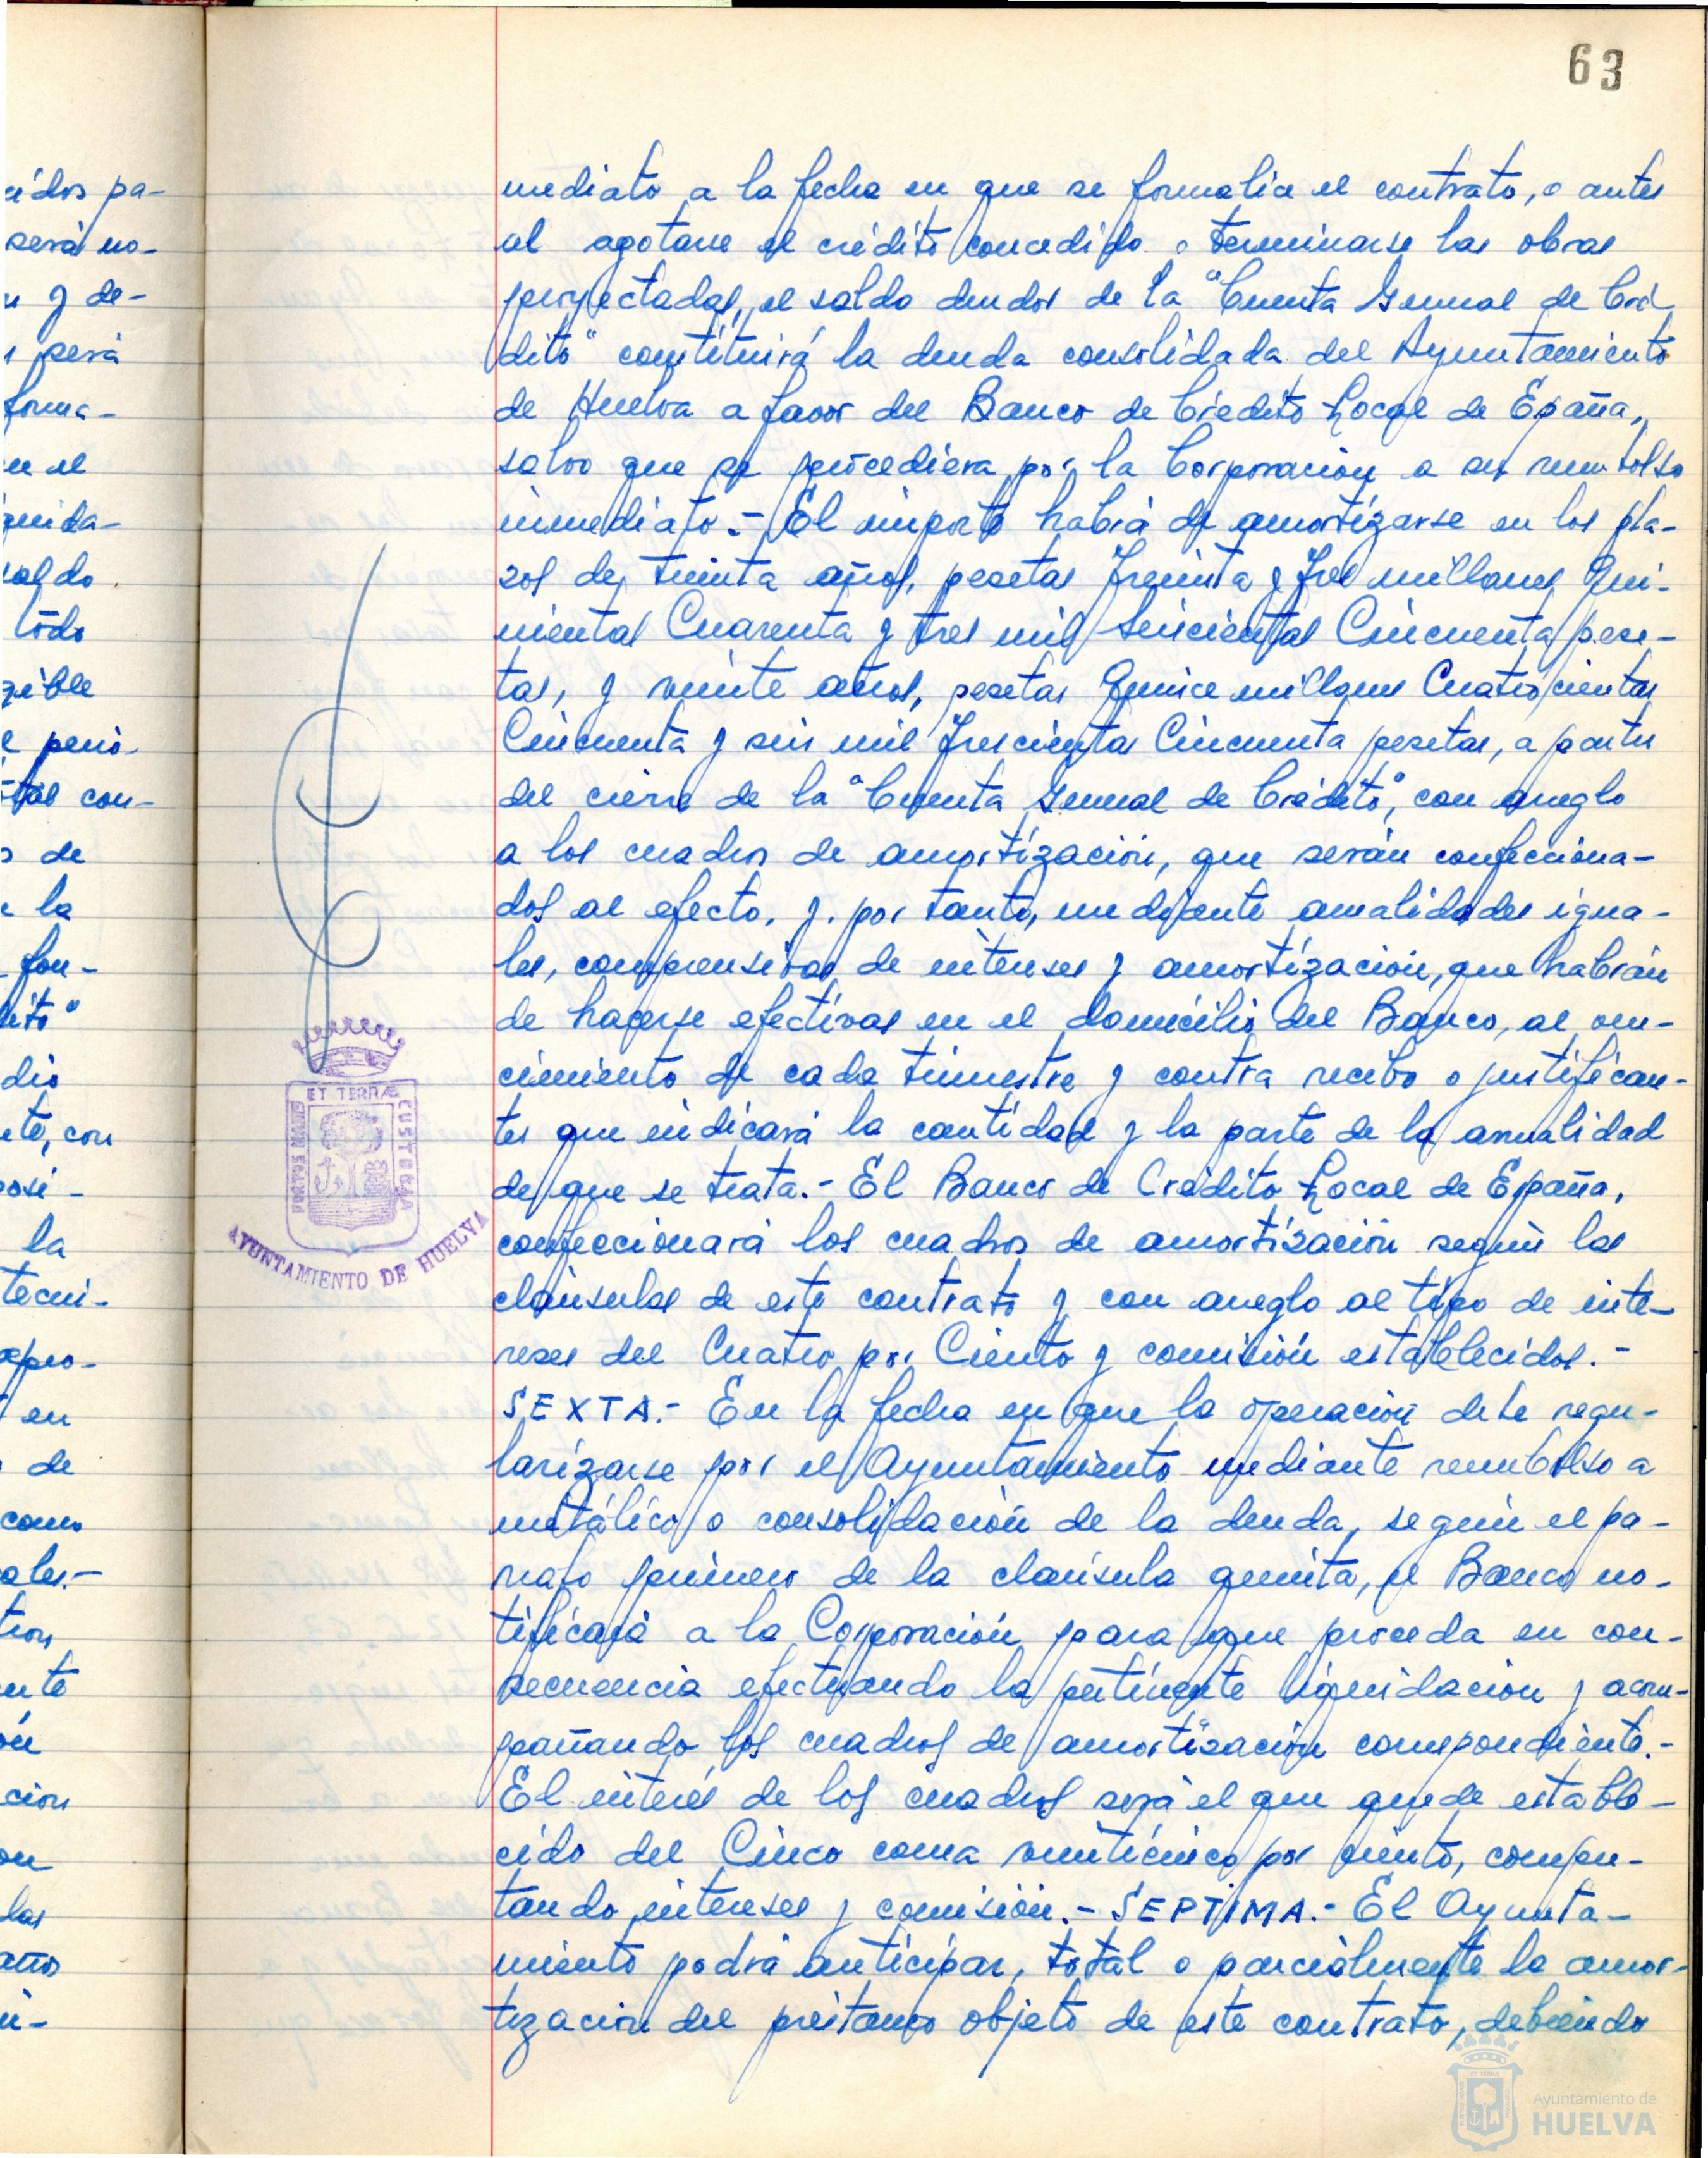 63
mediato a la fecha en que se formalice el contrato, o antes
al agotarse el crédito concedido o terminarse las obras
proyectadas, el saldo deudor de la "Cuenta General de Cré
dito" constituirá la deuda consolidada del Ayuntamiento
de Huelva a favor del Banco de Crédito Local de España,
salvo que se procediera por la Corporación a su reembolso
inmediato.- El importe habrá de amortizarse en los pla-
zos de, treinta años, pesetas Treinta y Tres millones Qui-
nientas Cuarenta y tres mil Seiscientas Cincuenta pese-
tas, y veinte años, pesetas Quince millones Cuatrocientas
Cincuenta y seis mil Trescientas Cincuenta pesetas, a partir
del cierre de la "Cuenta General de Crédito", con arreglo
a los cuadros de amortización, que serán confecciona-
dos al efecto. y. por tanto, mediante anualidades igua-
les, comprensivas de intereses y amortización, que habrán
de hacerse efectivas en el domicilio del Banco, al ven-
cimiento de cada trimestre y contra recibo o justifican-
tes que indicará la cantidad y la parte de la anualidad
de que se trata.- El Banco de Crédito Local de España,
confeccionará los cuadros de amortización según las
cláusulas de este contrato y con arreglo al tipo de inte-
reses del Cuatro por Ciento y comisión establecidos.-
SEXTA.- En la fecha en que la operación debe regu-
larizarse por el Ayuntamiento mediante reembolso a
metálico o consolidación de la deuda, según el pá-
rrafo primero de la cláusula quinta, el Banco no-
tificará a la Corporación para que proceda en con-
secuencia efectuando la pertinente liquidación y acom-
pañando los cuadros de amortización correspondiente.-
El interés de los cuadros será el que quede estable-
cido del Cinco coma veinticinco por ciento, compu-
tando intereses y comisión.- SEPTIMA.- El Ayunta-
miento podrá anticipar, total o parcialmente la amor-
tización del préstamo objeto de este contrato, debiendo
PORTUS MARIS ET TERRAE CUSTODIA
AYUNTAMIENTO DE HUELVA
cidos pa-
será no-
y de-
será
forma-
en el
quida-
saldo
todo
gible
perió-
tal con-
de
la
fon-
dito"
dio
te, con
posi-
la
tecni-
apro-
en
de
como
ales.-
ción
las
años
Ayuntamiento de
HUELVA